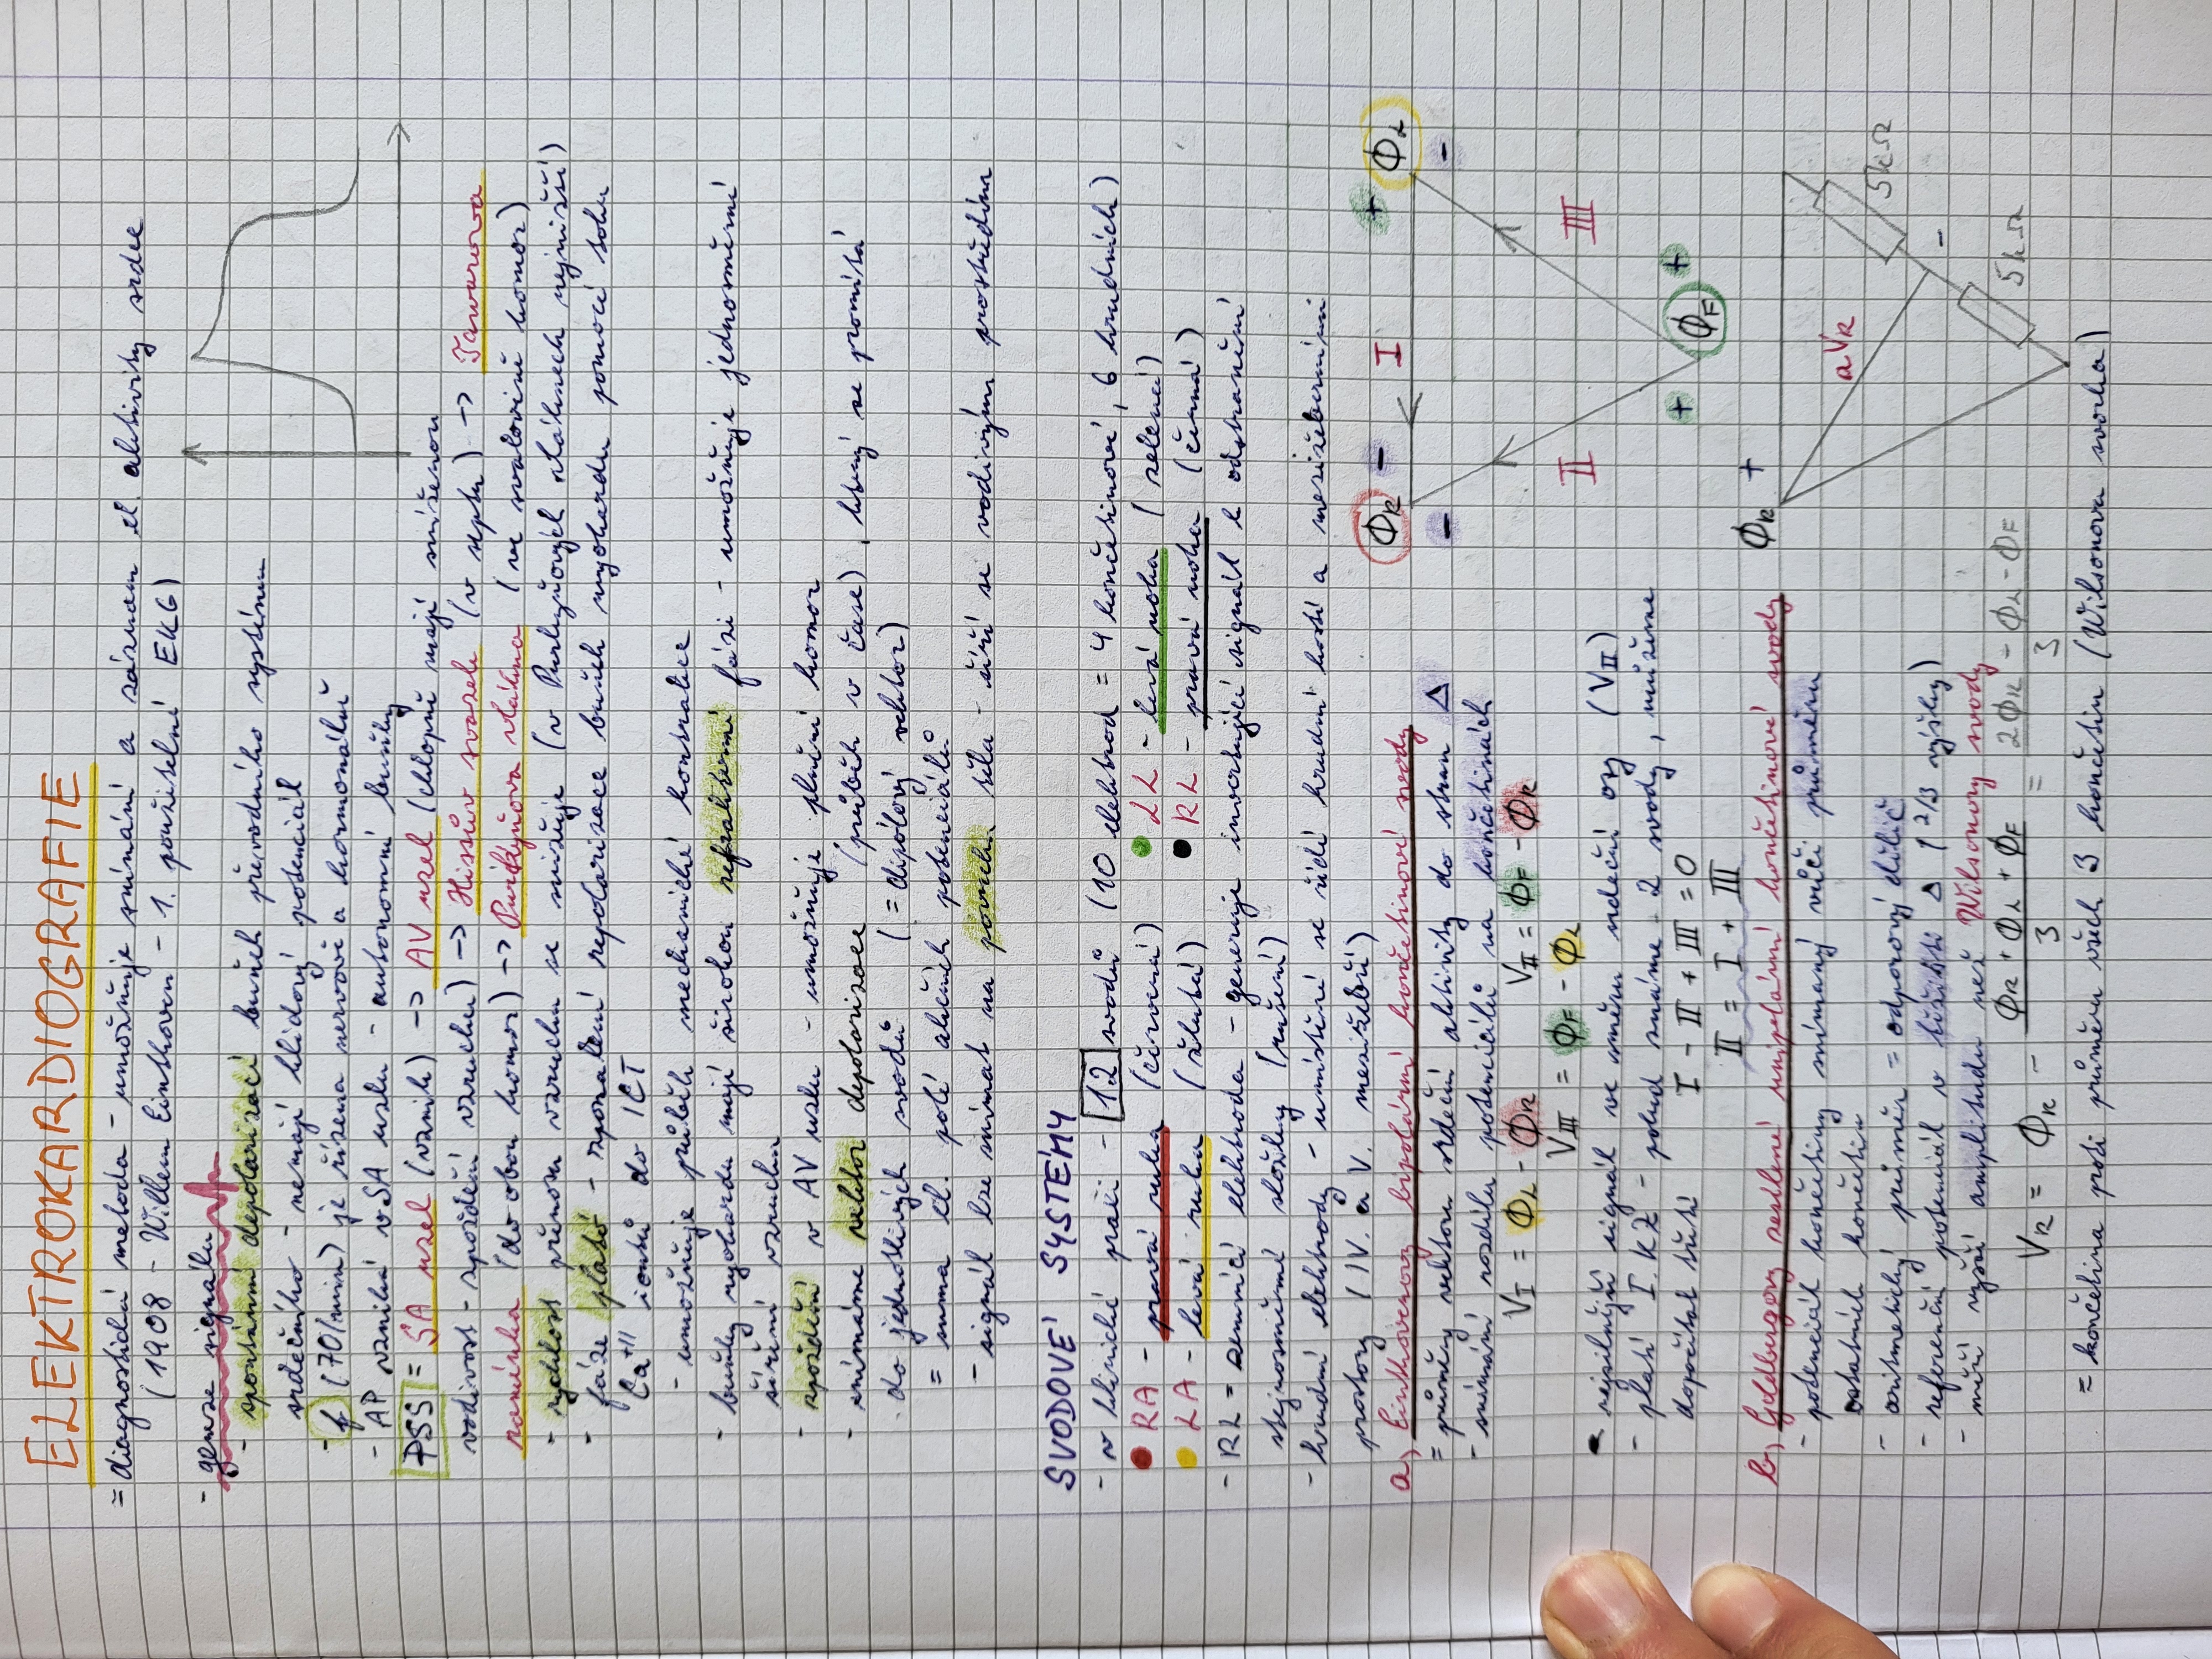 ELEKTROKARDIOGRAFIE
= diagnostická metoda - umožňuje snímání a záznam el. aktivity srdce
(1908 - Willem Einthoven - 1. použitelné EKG)
- geneze signálu
- spontánní depolarizací buněk převodního systému
srdečního - nemají klidový potenciál
- f (70/min) je řízena nervově a hormonálně
- AP vzniká v SA uzlu - autonomní buňky
PSS = SA uzel (vznik) -> AV uzel (chlopně mají sníženou
vodivost - zpoždění vzruchu) -> Hissův svazek (v septu) -> Tawarova
raménka (do obou komor) -> Purkyňova vlákna (ve svalovině komor)
- rychlost přenosu vzruchu se snižuje (v Purkyňových vláknech nejnižší)
- fáze plató - zpomalení repolarizace buněk myokardu pomocí toku
Ca+II iontů do ICT
- umožňuje průběh mechanické kontrakce
- buňky myokardu mají širokou refrakterní fázi - umožňuje jednosměrné
šíření vzruchu
- zpoždění v AV uzlu - umožňuje plnění komor
- snímáme vektor depolarizace (průběh v čase), který se promítá
do jednotlivých svodů (= dipólový vektor)
= suma el. polí akčních potenciálů
- signál lze snímat na povrchu těla - šíří se vodivým prostředím
SVODOVÉ SYSTÉMY
- v klinické praxi - 12 svodů (10 elektrod = 4 končetinové, 6 hrudních)
RA - pravá ruka (červená) LL - levá noha (zelená)
LA - levá ruka (žlutá) RL - pravá noha (černá)
- RL = zemnící elektroda - generuje invertující signál k odstranění
stejnosměrné složky (rušení)
- hrudní elektrody - umístění se řídí hrudní kostí a mezižeberními
prostory (IV. a V. mezižebří)
a) Einthovenovy bipolární končetinové svody
= průměty vektoru srdeční aktivity do stran Δ
- snímání rozdílu potenciálů na končetinách
V_I = Φ_L - Φ_R V_II = Φ_F - Φ_R
V_III = Φ_F - Φ_L
- nejsilnější signál ve směru srdeční osy (V_II)
- platí I. KZ - pokud známe 2 svody, můžeme
dopočítat třetí I - II + III = 0
II = I + III
Φ_R - I + Φ_L
- -
II III
+ Φ_F +
b) Goldbergovy zesílené unipolární končetinové svody
- potenciál končetiny snímaný vůči průměru
ostatních končetin
- aritmetický průměr = odporový dělič
- referenční potenciál v těžišti Δ (2/3 výšky)
- měří vyšší amplitudu než Wilsonovy svody
V_R = Φ_R - (Φ_R + Φ_L + Φ_F)/3 = (2Φ_R - Φ_L - Φ_F)/3
= končetina proti průměru všech 3 končetin (Wilsonova svorka)
Φ_R +
aV_R
5kΩ
-
5kΩ